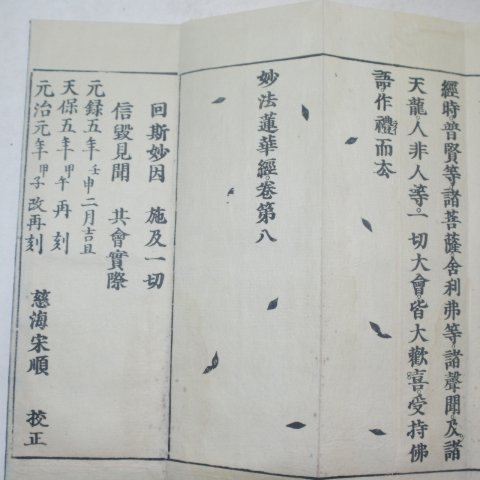 經時普賢等諸菩薩舍利弗等諸聲聞及諸
天龍人非人等一切大會皆大歡喜受持佛
語作禮而去
妙法蓮華經卷第八
回斯妙因 施及一切
信毀見聞 共會實際
元録五年壬申二月吉旦
天保五年甲午再刻
元治元年甲子改再刻
慈海宋順 挍正